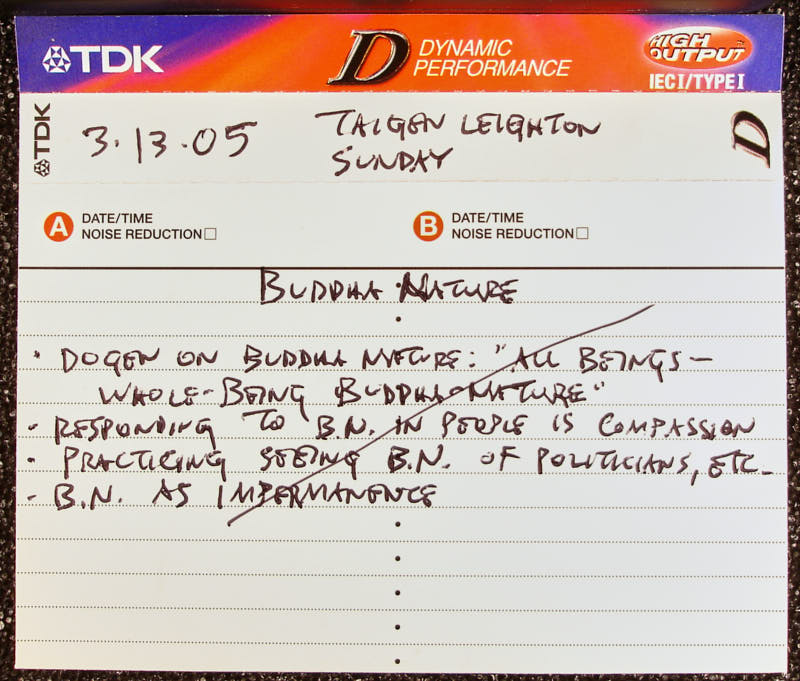 TDK D DYNAMIC PERFORMANCE HIGH OUTPUT
IEC I/TYPE I
TDK 3.13.05 TAIGEN LEIGHTON D
SUNDAY
A DATE/TIME B DATE/TIME
NOISE REDUCTION NOISE REDUCTION
BUDDHA NATURE
· DOGEN ON BUDDHA NATURE: "ALL BEINGS –
WHOLE-BEING BUDDHA-NATURE"
- RESPONDING TO B.N. IN PEOPLE IS COMPASSION
· PRACTICING SEEING B.N. OF POLITICIANS, ETC.
- B.N. AS IMPERMANENCE